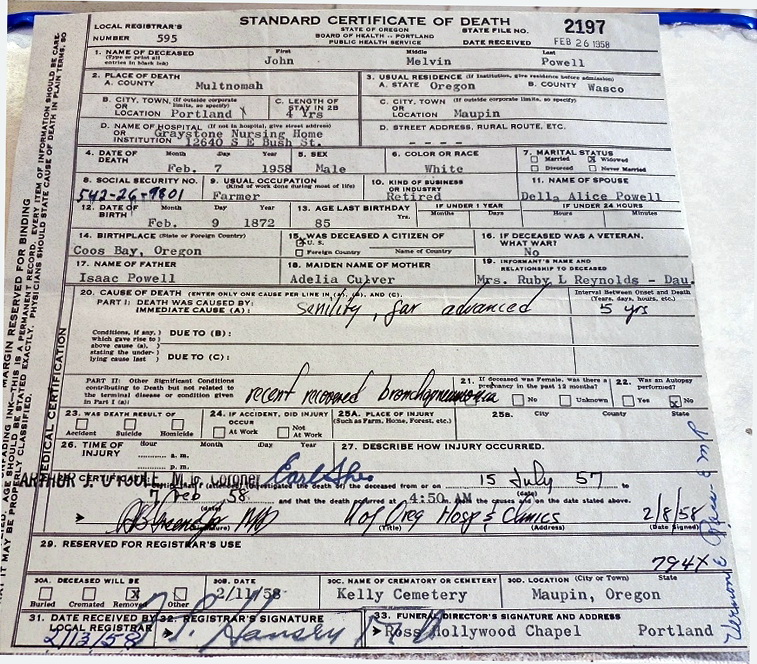 STANDARD CERTIFICATE OF DEATH
LOCAL REGISTRAR'S NUMBER 595
STATE OF OREGON
BOARD OF HEALTH - PORTLAND
PUBLIC HEALTH SERVICE
STATE FILE NO. 2197
DATE RECEIVED FEB 26 1958
1. NAME OF DECEASED First Middle Last
(Type or print all entries in black ink) John Melvin Powell
2. PLACE OF DEATH
A. COUNTY Multnomah
3. USUAL RESIDENCE (If institution, give residence before admission)
A. STATE Oregon B. COUNTY Wasco
B. CITY, TOWN, (If outside corporate limits, so specify) OR Portland
C. LENGTH OF STAY IN 2B 4 Yrs
C. CITY, TOWN, (If outside corporate limits, so specify) OR Maupin
D. NAME OF HOSPITAL (If not in hospital, give street address) OR INSTITUTION Graystone Nursing Home
12640 S E Bush St.
D. STREET ADDRESS, RURAL ROUTE, ETC.
- - - -
4. DATE OF DEATH Month Day Year
Feb. 7 1958
5. SEX Male
6. COLOR OR RACE White
7. MARITAL STATUS
Married Widowed
Divorced Never Married
8. SOCIAL SECURITY NO.
542-26-9801
9. USUAL OCCUPATION (Kind of work done during most of life)
Farmer
10. KIND OF BUSINESS OR INDUSTRY
Retired
11. NAME OF SPOUSE
Della Alice Powell
12. DATE OF BIRTH Month Day Year
Feb. 9 1872
13. AGE LAST BIRTHDAY
85 Yrs.
IF UNDER 1 YEAR Months Days
IF UNDER 24 HOURS Hours Minutes
14. BIRTHPLACE (State or Foreign Country)
Coos Bay, Oregon
15. WAS DECEASED A CITIZEN OF
U.S.
Foreign Country Name of Country
16. IF DECEASED WAS A VETERAN, WHAT WAR?
No
17. NAME OF FATHER
Isaac Powell
18. MAIDEN NAME OF MOTHER
Adelia Culver
19. INFORMANT'S NAME AND RELATIONSHIP TO DECEASED
Mrs. Ruby L Reynolds - Dau.
20. CAUSE OF DEATH (ENTER ONLY ONE CAUSE PER LINE IN (A), (B), AND (C).
PART I: DEATH WAS CAUSED BY:
IMMEDIATE CAUSE (A): Senility, far advanced
Interval Between Onset and Death (Years, days, hours, etc.)
5 yrs
Conditions, if any, which gave rise to above cause (a), stating the underlying cause last
DUE TO (B):
DUE TO (C):
PART II: Other Significant Conditions contributing to Death but not related to the terminal disease or condition given in Part I (a)
recent recovered bronchopneumonia
21. If deceased was Female, was there a pregnancy in the past 12 months?
Yes No Unknown
22. Was an Autopsy performed?
Yes No
23. WAS DEATH RESULT OF
Accident Suicide Homicide
24. IF ACCIDENT, DID INJURY OCCUR
At Work Not At Work
25A. PLACE OF INJURY
(Such as Farm, Home, Forest, etc.)
25B. City County State
26. TIME OF INJURY Hour Month Day Year
a. m.
p. m.
27. DESCRIBE HOW INJURY OCCURRED.
M.D. Coroner
the deceased from or on 15 July 57 to
7 Feb 58 and that the death occurred at 4:50 AM from the causes and on the date stated above.
MD
(Signature) (Title)
U of Oreg Hosp & Clinics
(Address)
2/8/58
(Date Signed)
29. RESERVED FOR REGISTRAR'S USE
794X
30A. DECEASED WILL BE
Buried Cremated Removed Other
30B. DATE
2/11/58
30C. NAME OF CREMATORY OR CEMETERY
Kelly Cemetery
30D. LOCATION (City or Town) State
Maupin, Oregon
31. DATE RECEIVED BY LOCAL REGISTRAR
2/13/58
32. REGISTRAR'S SIGNATURE
33. FUNERAL DIRECTOR'S SIGNATURE AND ADDRESS
Ross Hollywood Chapel Portland
MEDICAL CERTIFICATION
MARGIN RESERVED FOR BINDING